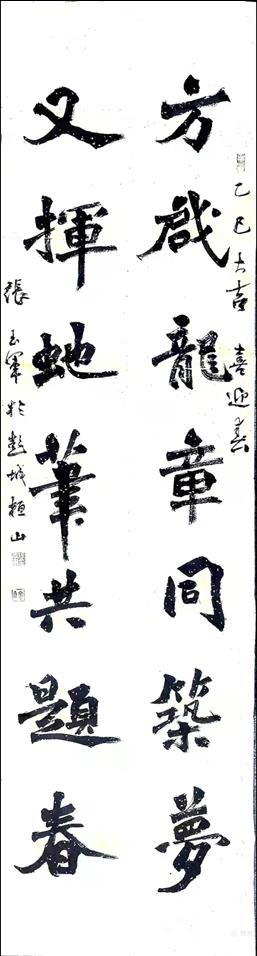 乙巳大吉 喜迎春
方啟龍章同築夢
又揮虵筆共題春
張玉軍於彭城桓山